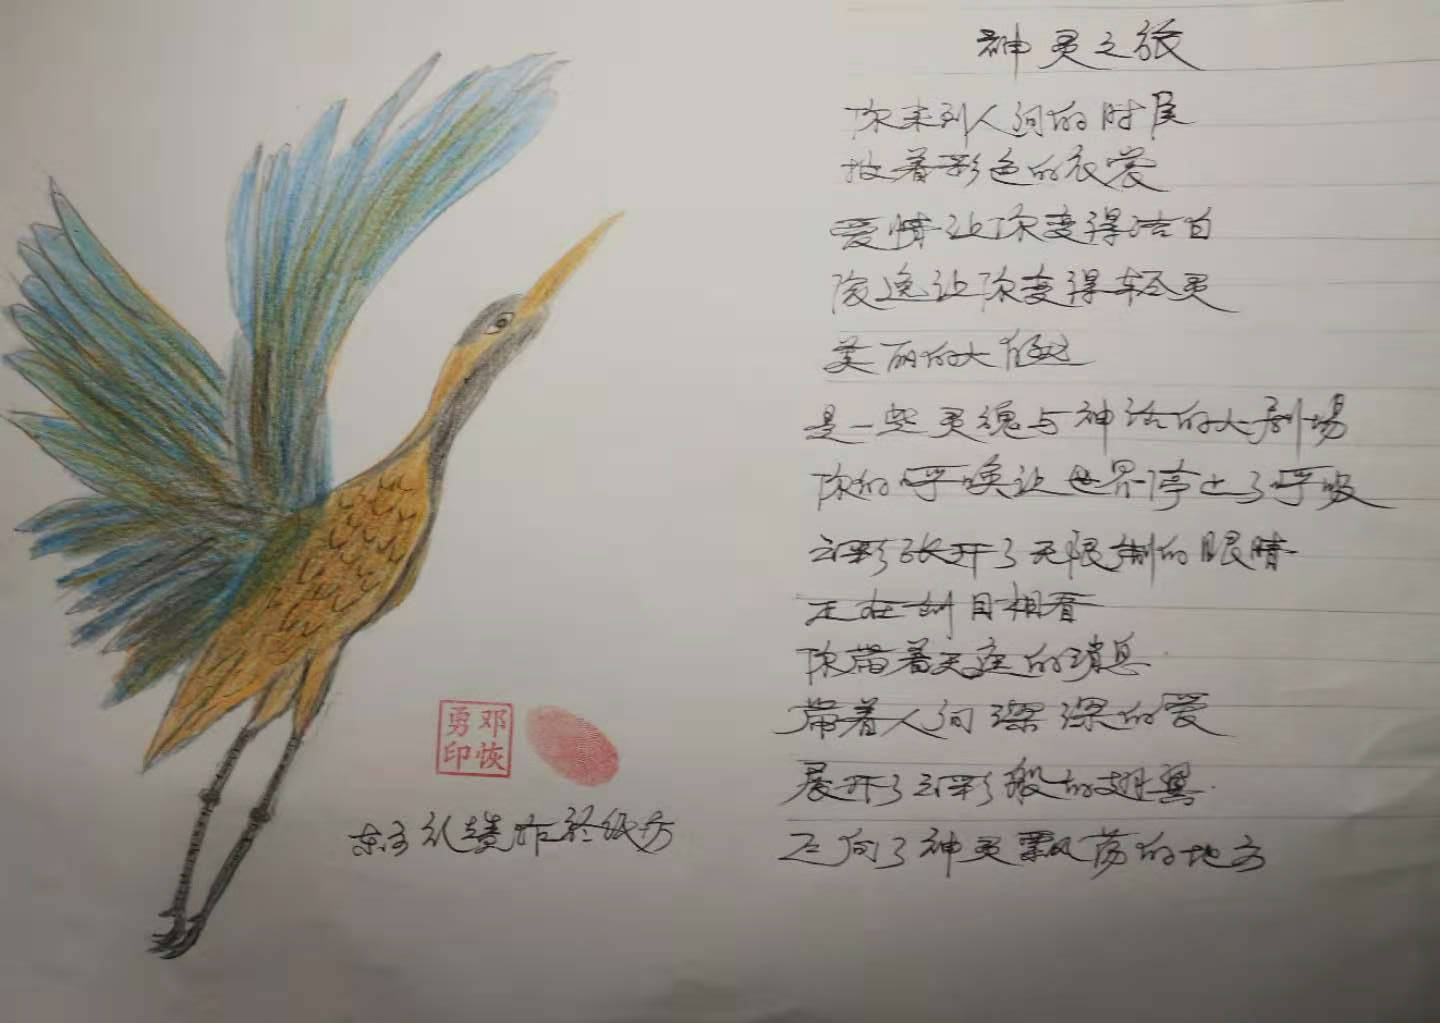 神灵之旅
你来到人间的时辰
披着彩色的衣裳
爱情让你变得洁白
俊逸让你变得轻灵
美丽的大
是一些灵魂与神话的大剧场
你的呼唤让世界停止了呼吸
云彩张开了无限制的眼睛
正在刮目相看
你带着天庭的消息
带着人间深深的爱
展开了云彩般的翅翼
飞向了神灵飘荡的地方
邓恢勇印
东方 作於纸方